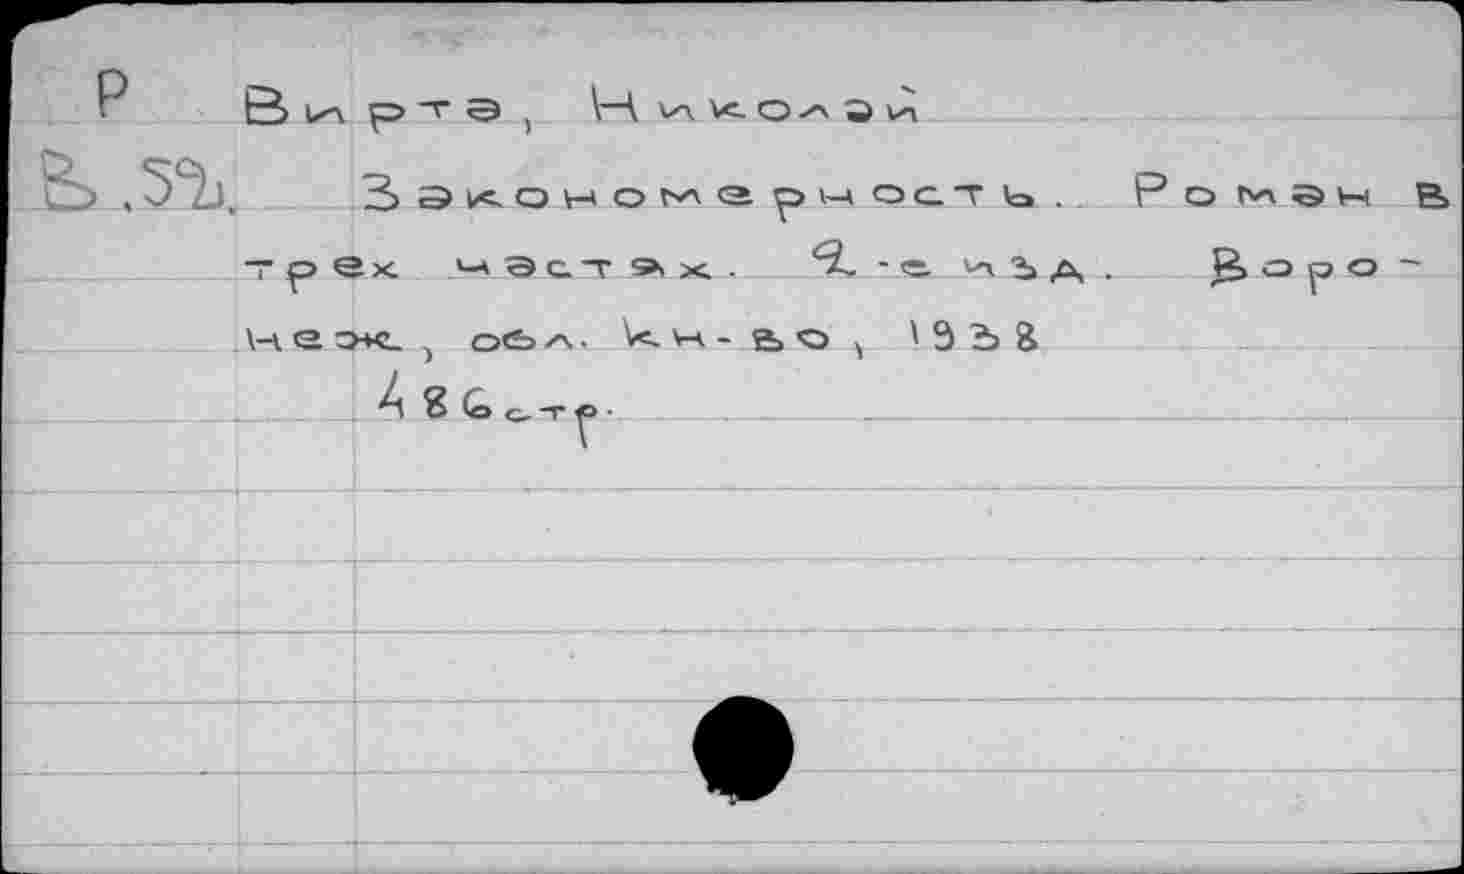 Р Вирта, Николай
В.52. Закономерность. Роман в
трех частях. 2-е изд. Воро-
неж., обл. кн-во, 1938
486 стр.